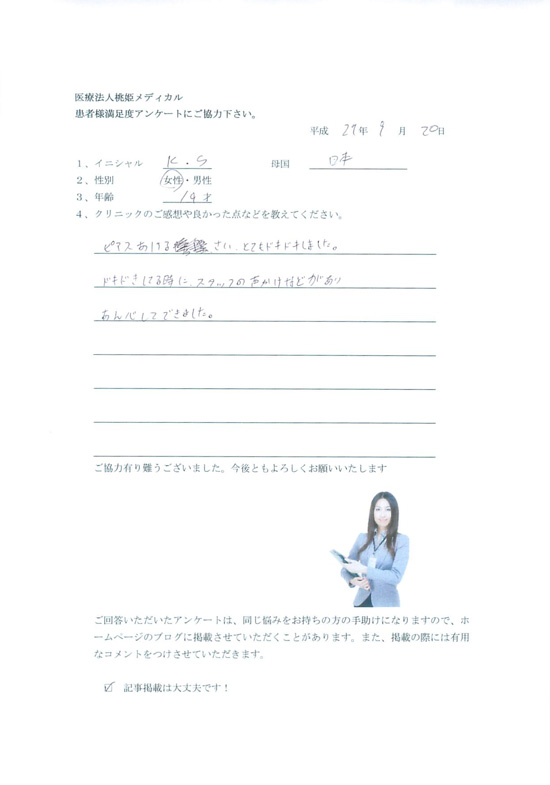 医療法人桃姫メディカル
患者様満足度アンケートにご協力下さい。
平成 27年 9 月 20日
1、イニシャル K・S 母国 日本
2、性別 女性・男性
3、年齢 19才
4、クリニックのご感想や良かった点などを教えてください。
ピアスあける さい、とてもドキドキしました。
ドキドキしてる時に、スタッフの声かけなどがあり
あん心してできました。
ご協力有り難うございました。今後ともよろしくお願いいたします
ご回答いただいたアンケートは、同じ悩みをお持ちの方の手助けになりますので、ホ
ームページのブログに掲載させていただくことがあります。また、掲載の際には有用
なコメントをつけさせていただきます。
☑ 記事掲載は大丈夫です！